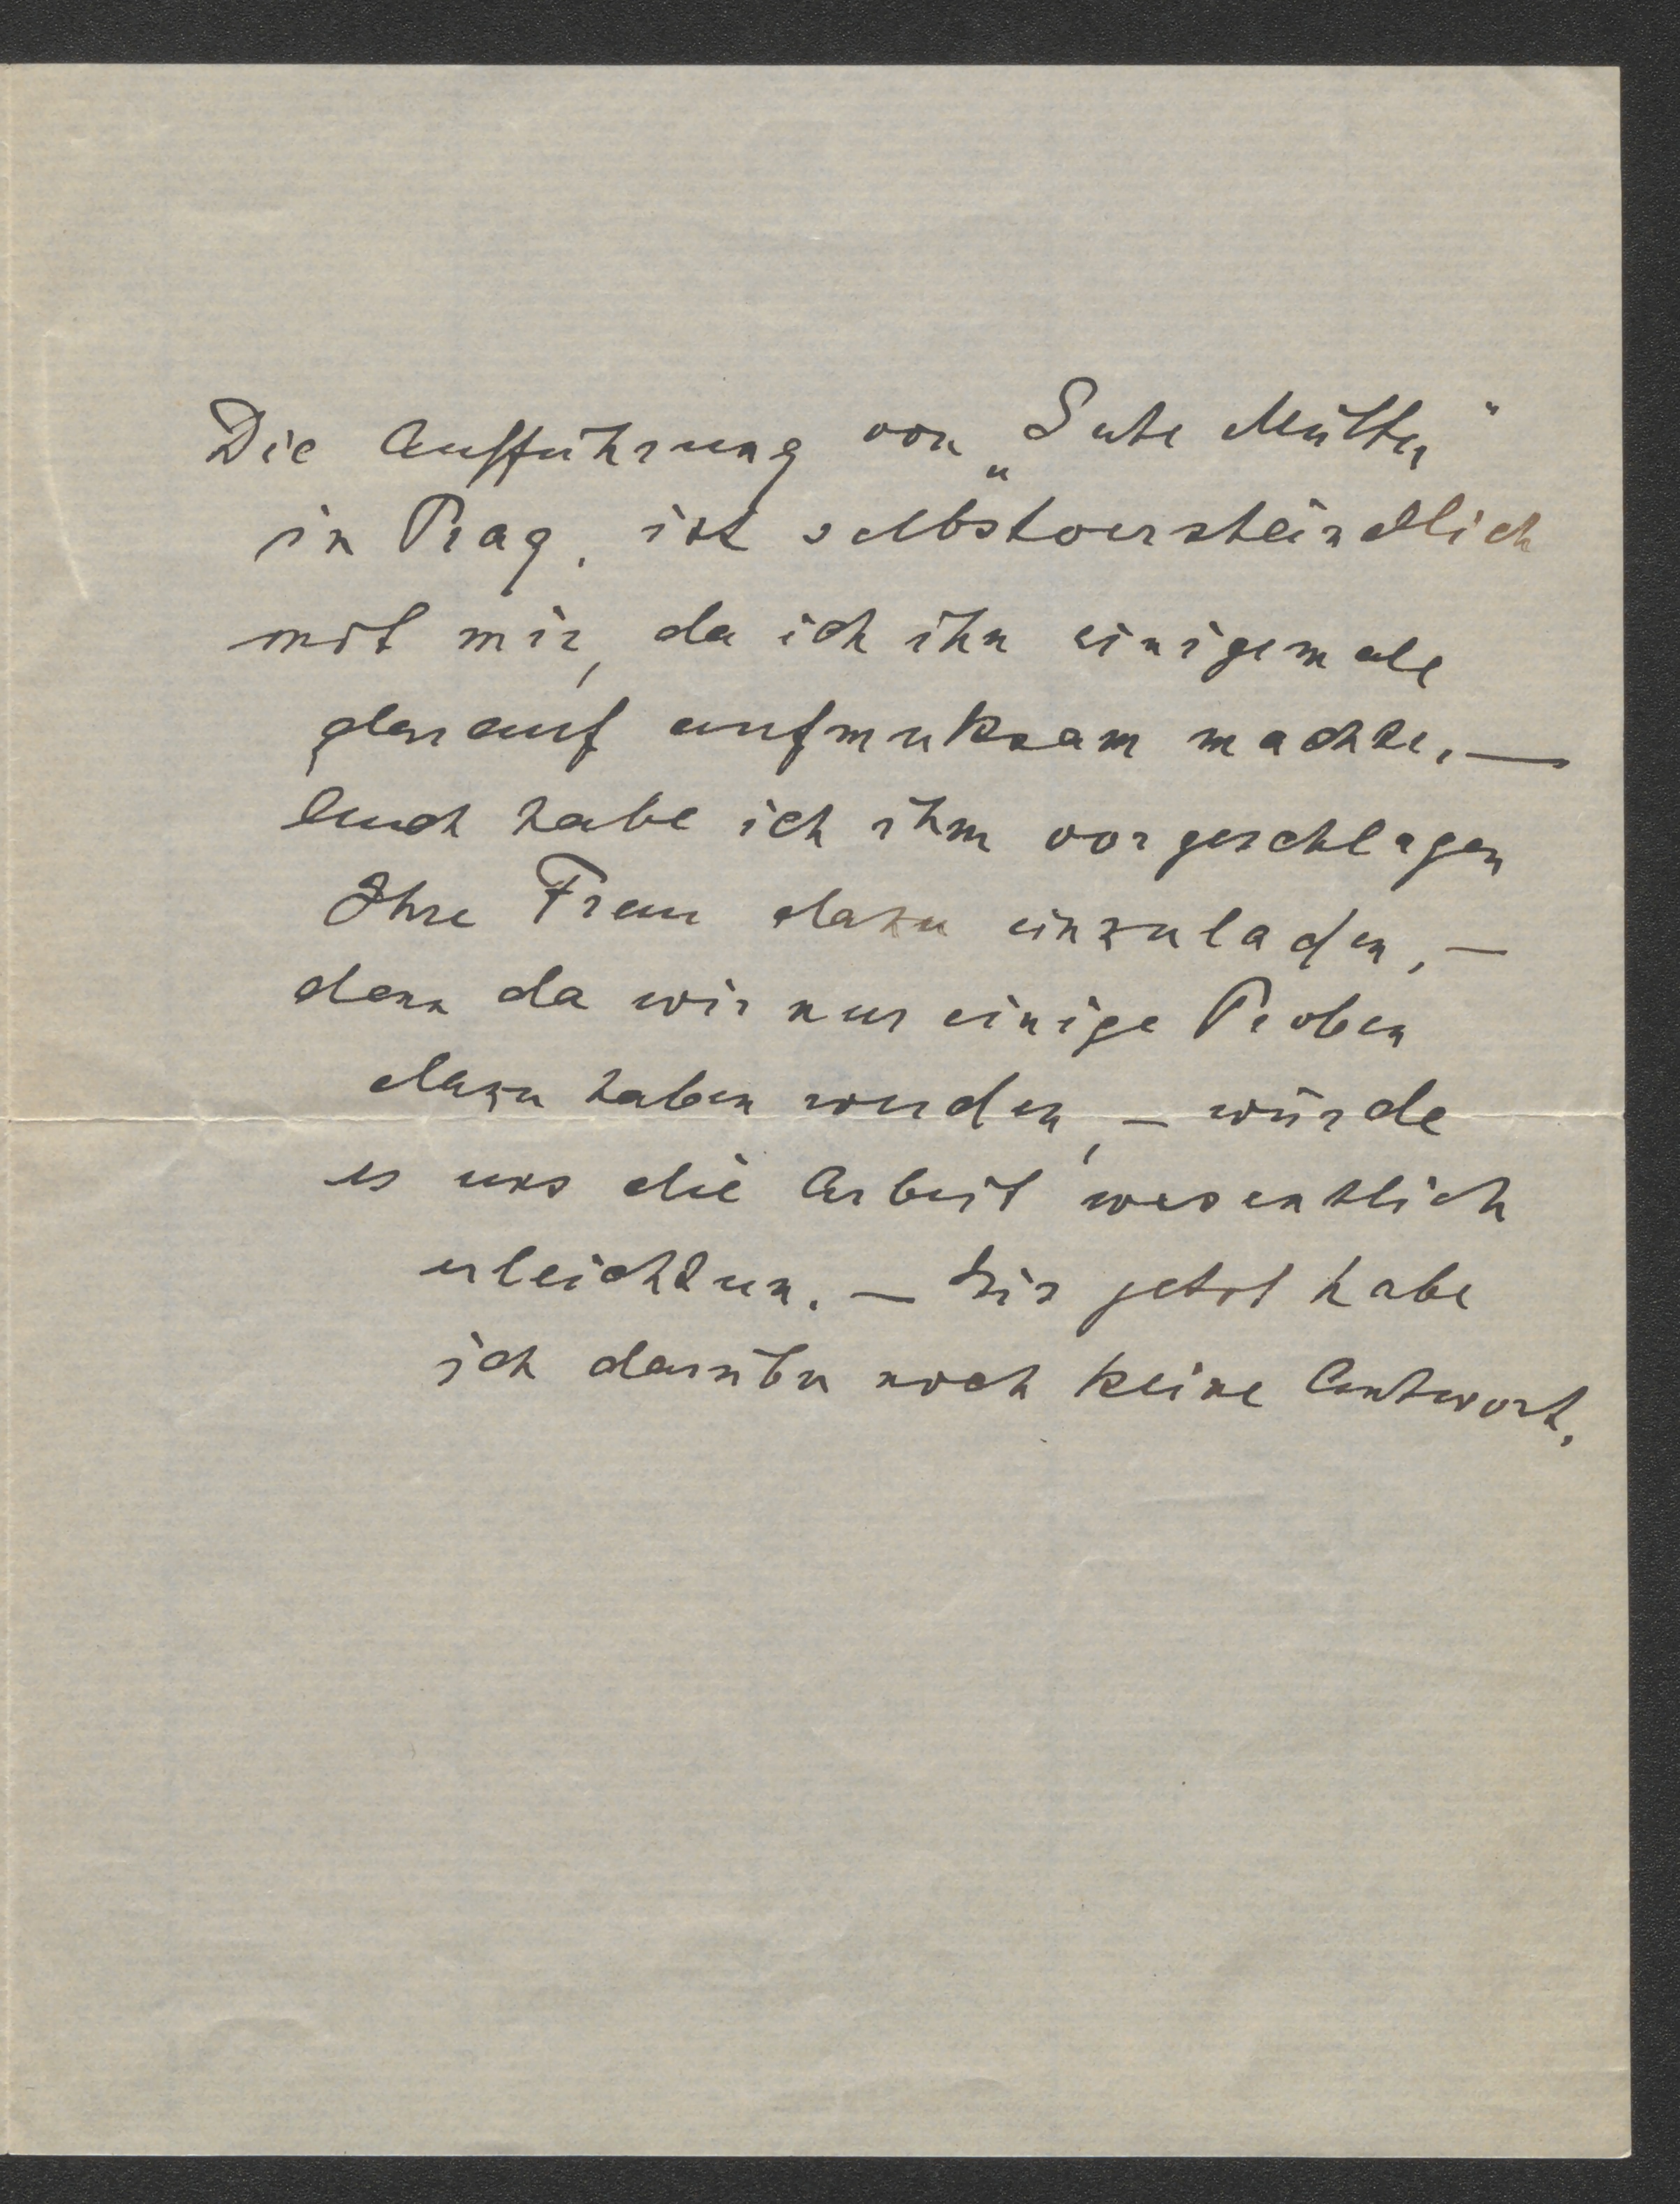 Die Aufführung von „Gute Mütter“
in Prag, ist selbstverständlich
mit mir, da ich ihn einigemale
darauf aufmerksam machte. —
Auch habe ich ihm vorgeschlagen
Ihre Frau dazu einzuladen, —
denn da wir nur einige Proben
dazu haben werden, — würde
es uns die Arbeit wesentlich
erleichtern. — Bis jetzt habe
ich darüber noch keine Antwort.